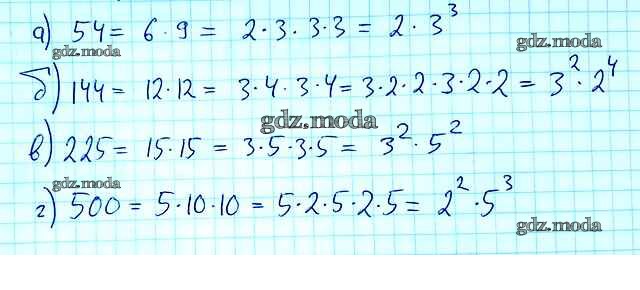 а) 54 = 6 · 9 = 2 · 3 · 3 · 3 = 2 · 3³
gdz.moda
gdz.moda
б) 144 = 12 · 12 = 3 · 4 · 3 · 4 = 3 · 2 · 2 · 3 · 2 · 2 = 3² · 2⁴
gdz.moda
в) 225 = 15 · 15 = 3 · 5 · 3 · 5 = 3² · 5²
gdz.moda
г) 500 = 5 · 10 · 10 = 5 · 2 · 5 · 2 · 5 = 2² · 5³
gdz.moda